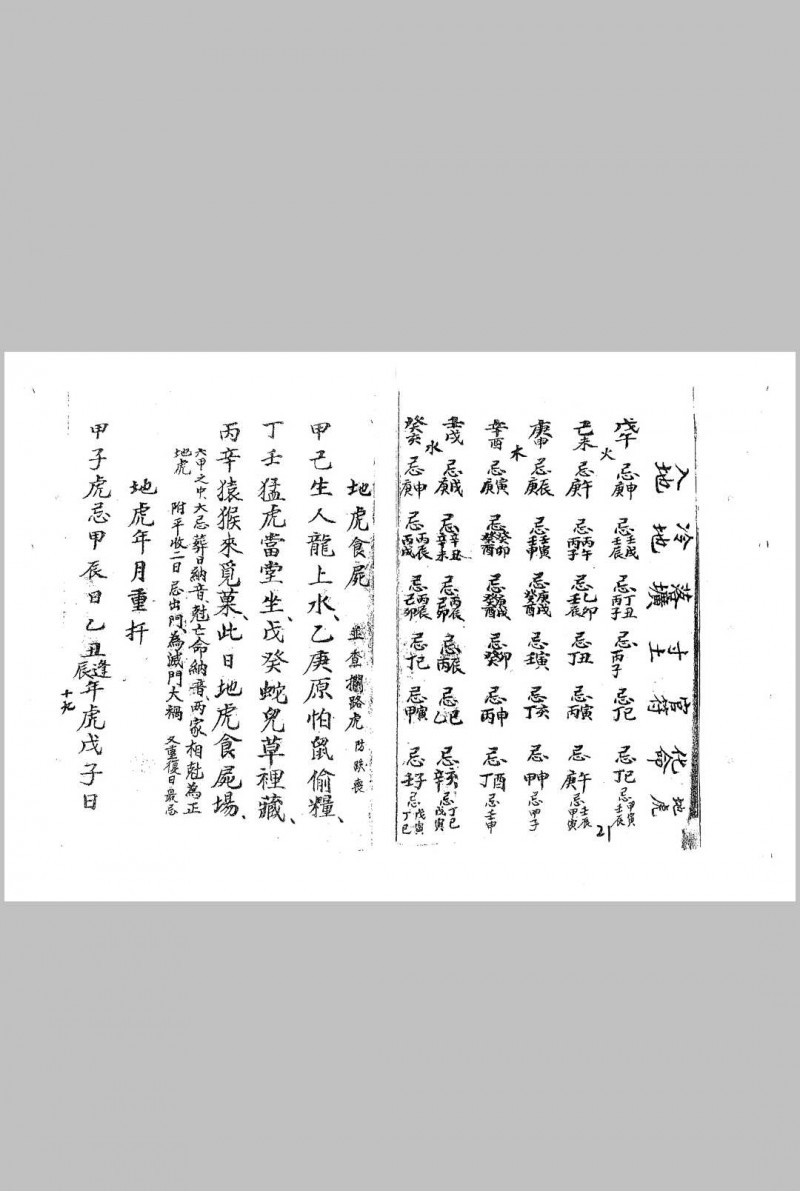 入地 冷地 落壙 寸土 官符 化命 地虎
戊午 火 忌庚申 忌壬戌壬辰 忌丁丑丙子 忌丙子 忌丁巳 忌丁巳 忌甲寅壬辰
己未 忌庚午 忌丙午丙子 忌乙卯壬辰 忌丁丑 忌丙寅 忌庚午 忌壬辰甲寅
21
庚申 木 忌庚辰 忌壬寅壬申 忌庚戌癸酉 忌壬寅 忌丁亥 忌甲申 忌甲子
辛酉 忌庚寅 忌癸卯癸酉 忌癸酉 忌癸卯 忌丙申 忌丁酉 忌壬申
壬戌 水 忌庚戌 忌辛丑辛未 忌丙辰己卯 忌丙辰 忌乙巳 忌辛亥 忌丁巳戊寅
癸亥 忌庚申 忌丙辰丙戌 忌丙辰己卯 忌丁巳 忌甲寅 忌壬子 忌戊寅丁巳
地虎食屍 並查攔路虎 防跌喪
甲己生人龍上水、乙庚原怕鼠偷糧、
丁壬猛虎當堂坐、戊癸蛇兒草裡藏、
丙辛猿猴來覓菓、此日地虎食屍場、
六甲之中、大忌葬日納音、尅亡命納音、兩家相尅為正
地虎 附平收二日 忌出門、為滅門大禍 又重復日最忌
地虎年月重扦
甲子虎忌甲辰日 乙丑逢辰年虎戊子日
十九